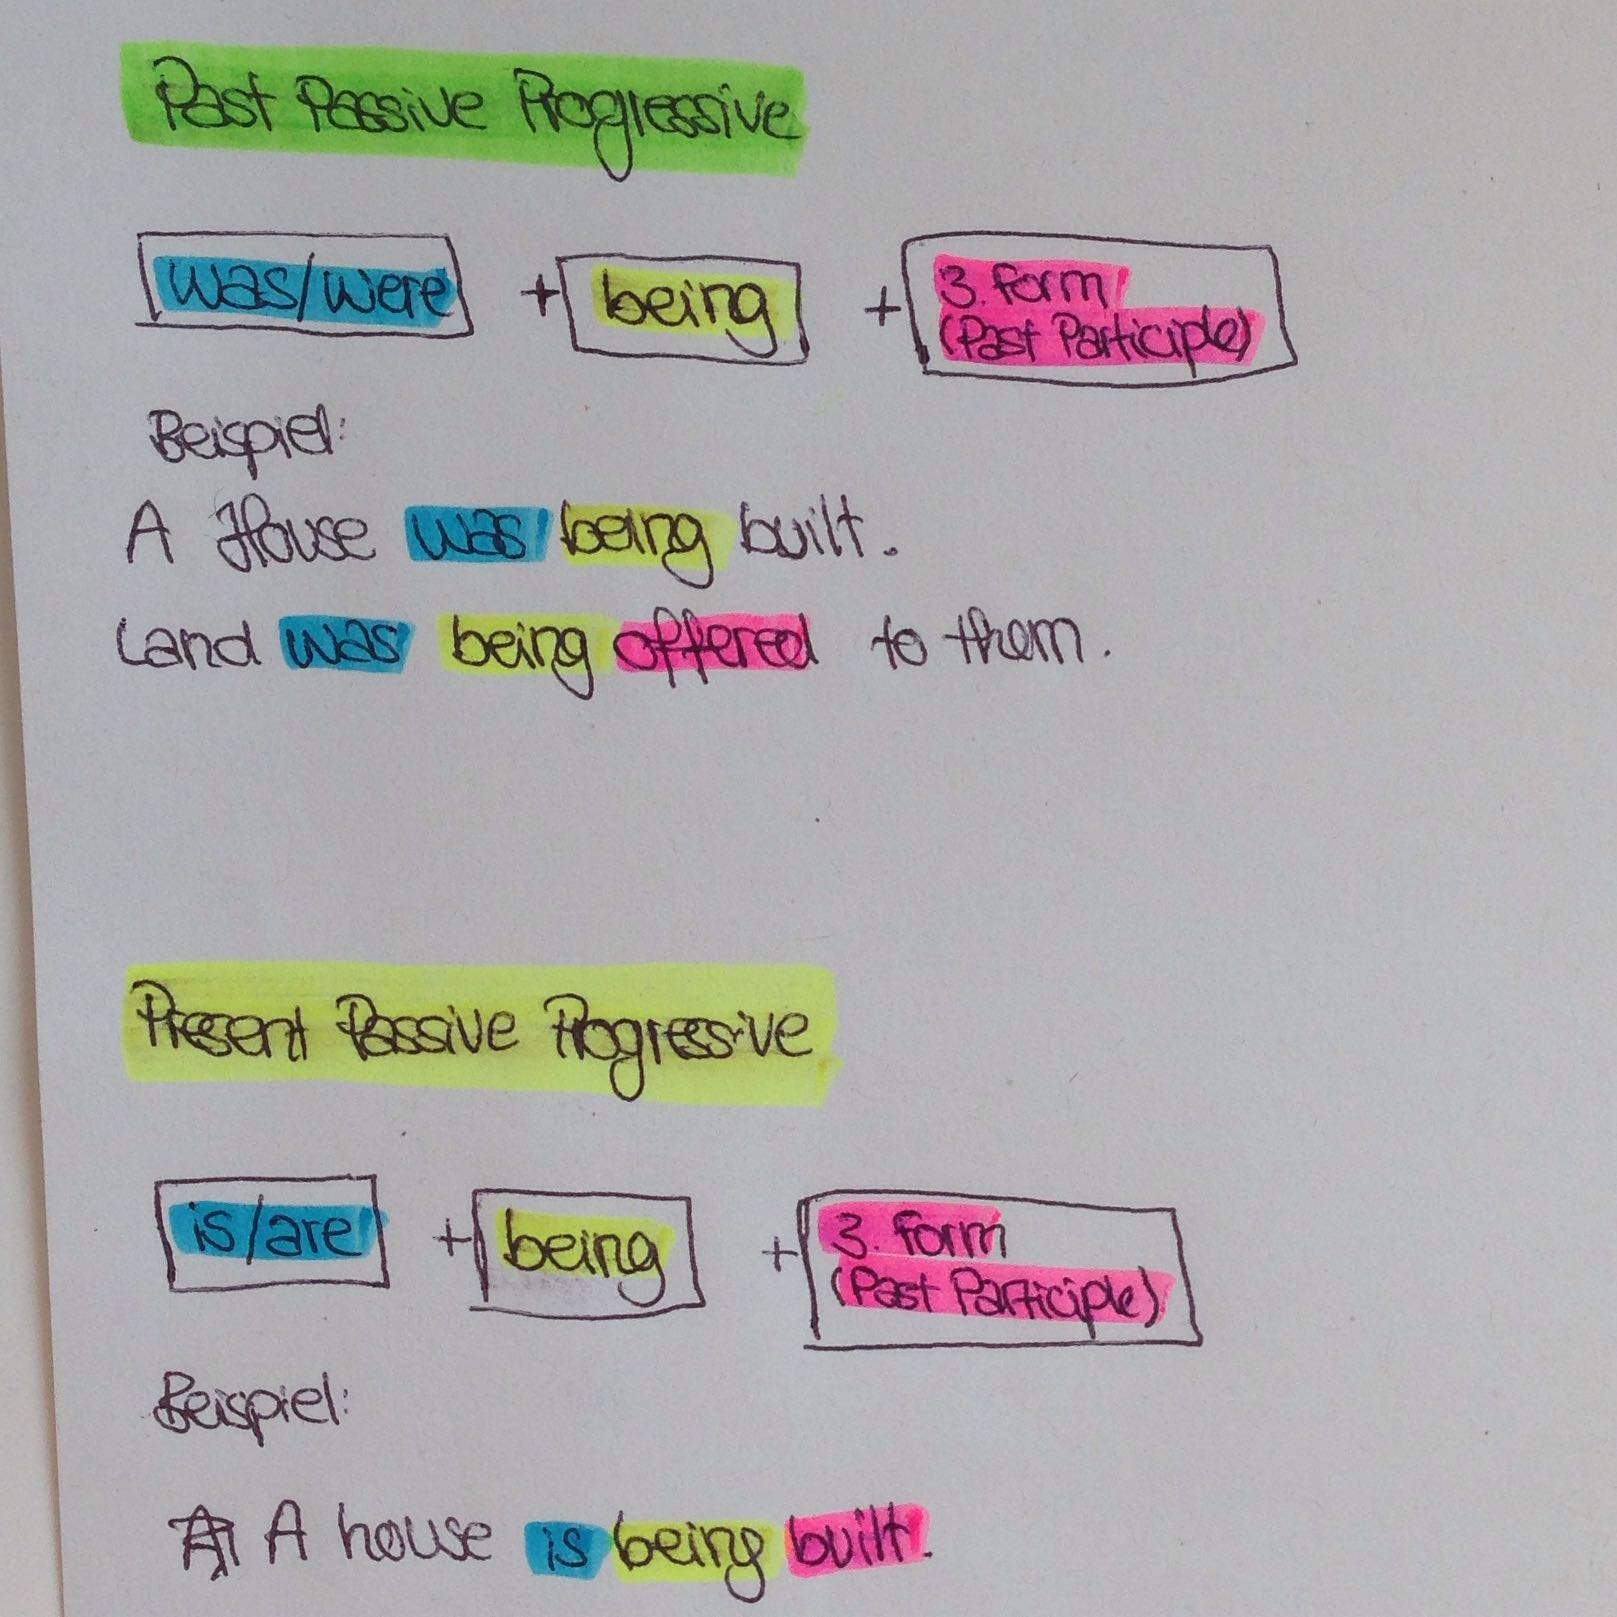 Past Passive Progressive
was/were + being + 3. form
(Past Participle)
Beispiel:
A House was being built.
Land was being offered to them.
Present Passive Progressive
is/are + being + 3. form
(Past Participle)
Beispiel:
A house is being built.